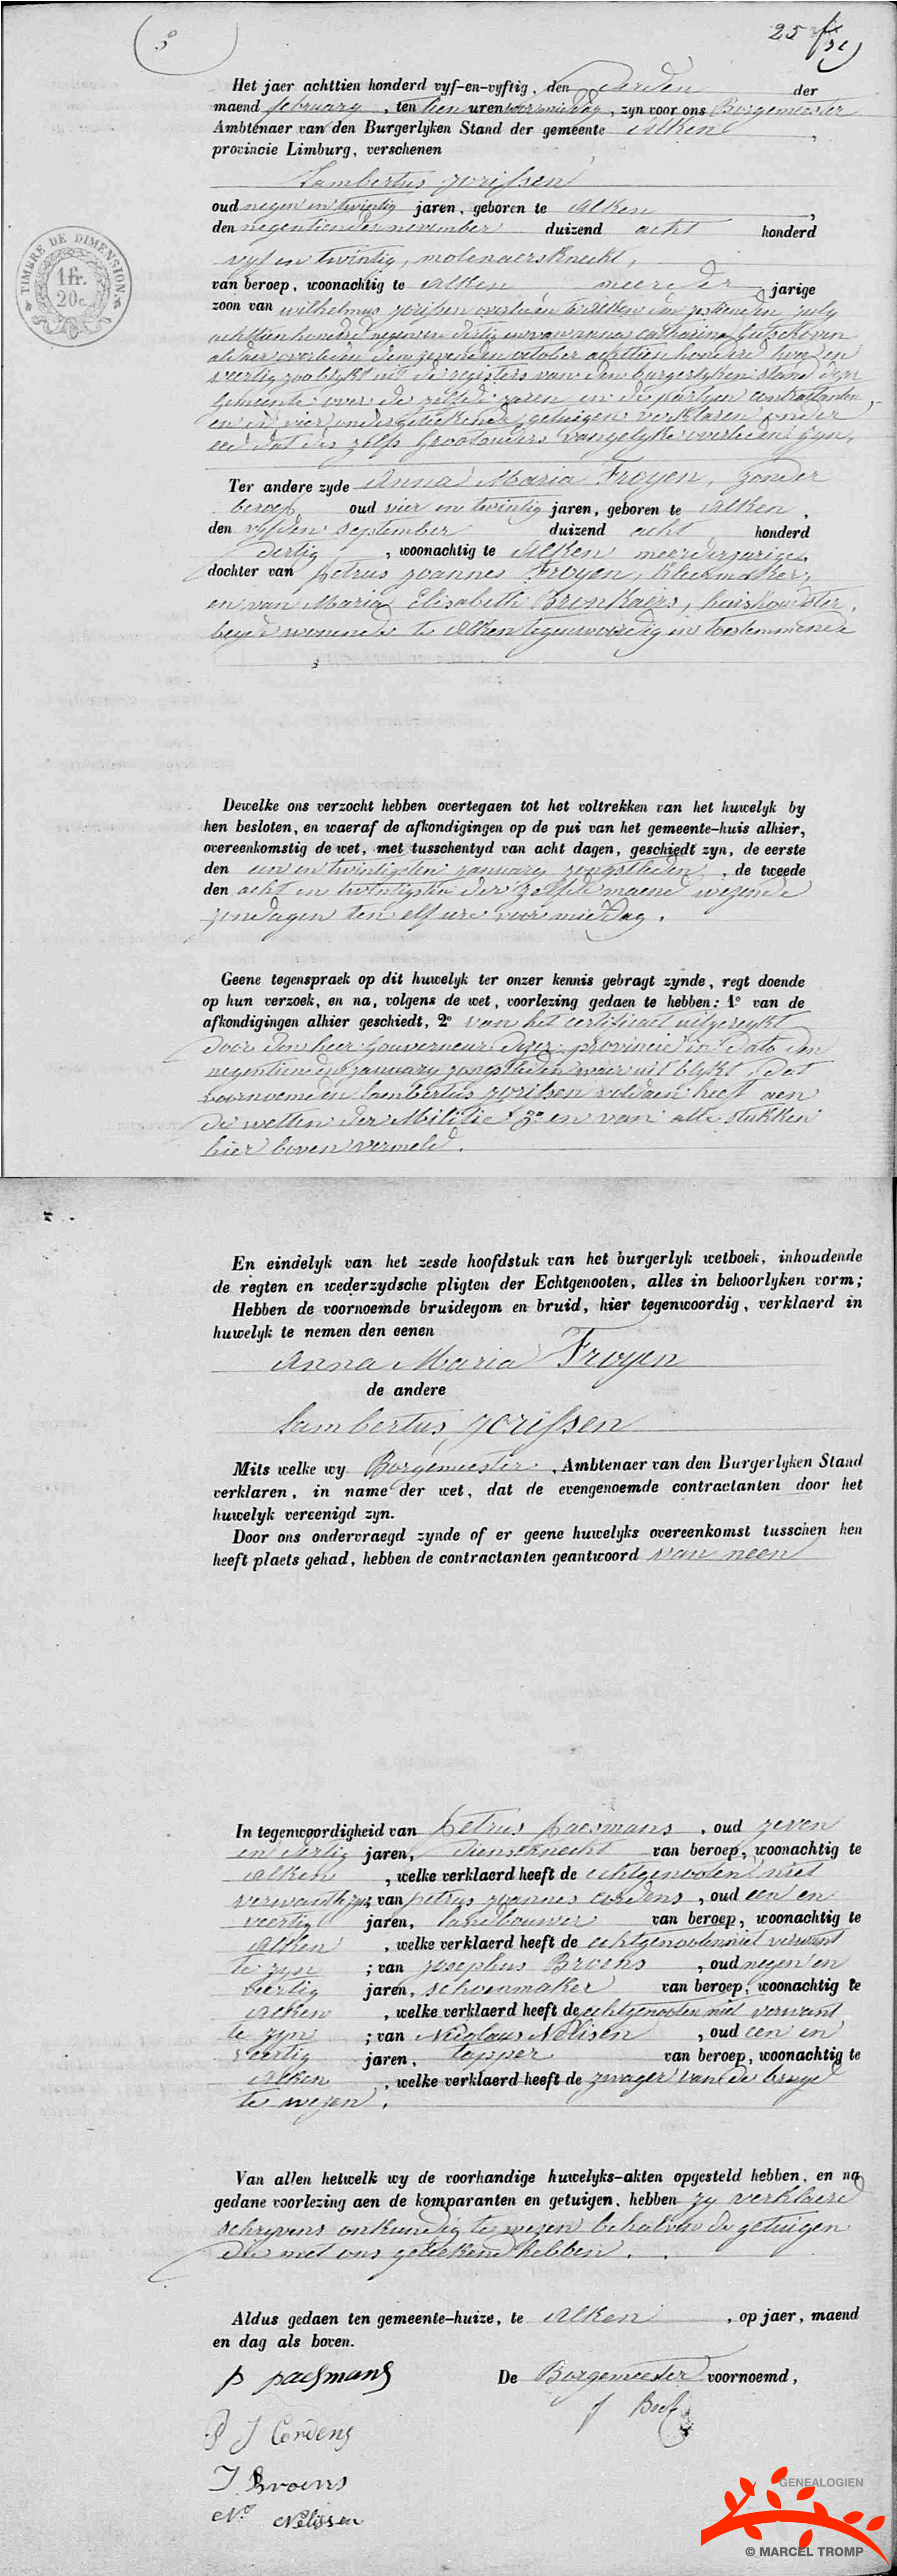 25
8
Het jaer achttien honderd vyf-en-vyftig, den derden der
maend february, ten tien uren voormiddag, zyn voor ons Borgemeester
Ambtenaer van den Burgerlyken Stand der gemeente Alken,
provincie Limburg, verschenen
Lambertus Jorissen
oud negen en twintig jaren, geboren te Alken,
den negentienden november duizend acht honderd
vyf en twintig, molenaersknecht,
van beroep, woonachtig te Alken meerder jarige
zoon van wilhelmus Jorissen overleden te Alken den july
achttien honderd negen en dertig en van anna catharina
alhier overleden den zevenden october achttien honderd twee en
veertig zoo blykt uit de registers van den burgerlyken stand dezer
gemeente over de zelfde jaren en de partyen contractanten
en de vier ondergeteekende getuigen verklaren onder
eed dat des zelfs grootouders van gelyke overleden zyn,
Ter andere zyde Anna Maria Froyen, zonder
beroep, oud vier en twintig jaren, geboren te Alken,
den vyfden september duizend acht honderd
dertig, woonachtig te Alken meerderjarige
dochter van petrus joannes Froyen, kleermaker,
en van Maria Elisabeth Bronkaers, huishoudster,
beyde wonende te Alken tegenwoordig en toestemmende
TIMBRE DE DIMENSION
1 fr.
20 c.
Dewelke ons verzocht hebben overtegaen tot het voltrekken van het huwelyk by
hen besloten, en waeraf de afkondigingen op de pui van het gemeente-huis alhier,
overeenkomstig de wet, met tusschentyd van acht dagen, geschiedt zyn, de eerste
den een en twintigsten january jongstleden, de tweede
den acht en twintigsten der zelfde maend wezende
zondagen ten elf ure voormiddag.
Geene tegenspraek op dit huwelyk ter onzer kennis gebragt zynde, regt doende
op hun verzoek, en na, volgens de wet, voorlezing gedaen te hebben: 1° van de
afkondigingen alhier geschiedt, 2° van het certificaet uitgereykt
door den heer Gouverneur dezer provincie in dato den
negentienden january jongstleden waer uit blykt dat
voornoemden lambertus Jorissen voldaen heeft aen
de wetten der Militie 3° en van alle stukken
hier boven vermeld.
En eindelyk van het zesde hoofdstuk van het burgerlyk wetboek, inhoudende
de regten en wederzydsche pligten der Echtgenooten, alles in behoorlyken vorm;
Hebben de voornoemde bruidegom en bruid, hier tegenwoordig, verklaerd in
huwelyk te nemen den eenen
Anna Maria Froyen
de andere
Lambertus Jorissen
Mits welke wy Borgemeester, Ambtenaer van den Burgerlyken Stand
verklaren, in name der wet, dat de evengenoemde contractanten door het
huwelyk vereenigd zyn.
Door ons ondervraegd zynde of er geene huwelyks overeenkomst tusschen hen
heeft plaets gehad, hebben de contractanten geantwoord van neen
In tegenwoordigheid van petrus paesmans, oud zeven
en dertig jaren, dienstknecht van beroep, woonachtig te
Alken, welke verklaerd heeft de echtgenooten niet
verwant te zyn, van petrus joannes cordens, oud een en
veertig jaren, landbouwer van beroep, woonachtig te
Alken, welke verklaerd heeft de echtgenooten niet verwant
te zyn; van josephus Broens, oud negen en
veertig jaren, schoenmaker van beroep, woonachtig te
Alken, welke verklaerd heeft de echtgenooten niet verwant
te zyn; van Nicolaus Nelisen, oud een en
veertig jaren, tapper van beroep, woonachtig te
Alken, welke verklaerd heeft de zwager van de bruyd
te wezen.
Van allen hetwelk wy de voorhandige huwelyks-akten opgesteld hebben, en na
gedane voorlezing aen de komparanten en getuigen, hebben zy verklaerd
schryvens onkundig te wezen behalven de getuigen
die met ons geteekend hebben.
Aldus gedaen ten gemeente-huize, te Alken, op jaer, maend
en dag als boven.
p paesmans
De Borgemeester voornoemd,
P J Cordens
J Broens
N° Nelissen
GENEALOGIEN
© MARCEL TROMP